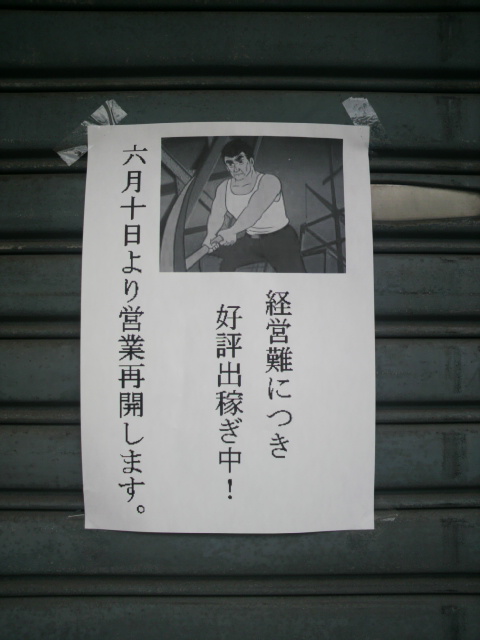 経営難につき
好評出稼ぎ中！
六月十日より営業再開します。